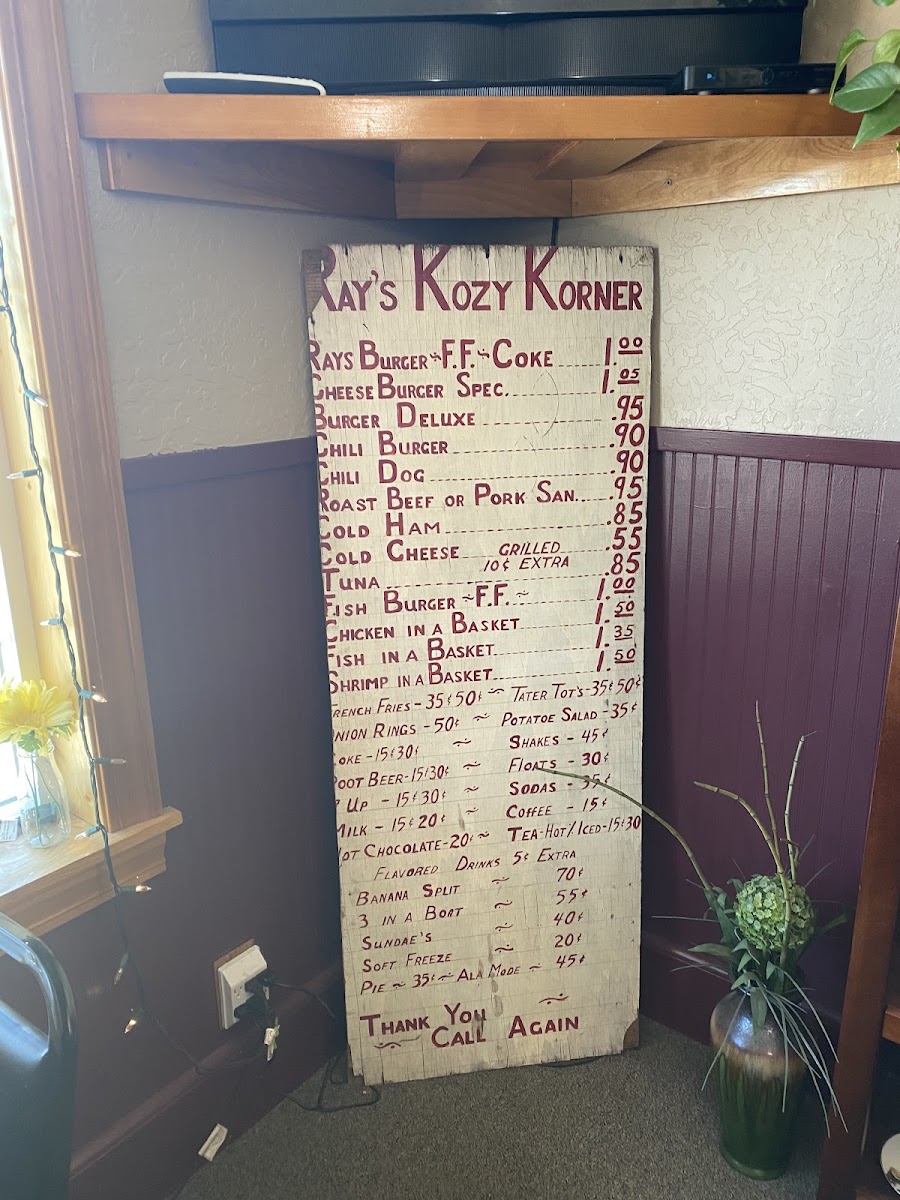 RAY'S KOZY KORNER
RAYS BURGER ~ F.F. ~ COKE 1.00
CHEESE BURGER SPEC. 1.05
BURGER DELUXE .95
CHILI BURGER .90
CHILI DOG .90
ROAST BEEF OR PORK SAN. .95
COLD HAM .85
COLD CHEESE GRILLED 10¢ EXTRA .55
TUNA .85
FISH BURGER ~ F.F. ~ 1.00
CHICKEN IN A BASKET 1.50
FISH IN A BASKET 1.35
SHRIMP IN A BASKET 1.50
FRENCH FRIES - 35¢ 50¢ ~ TATER TOT'S - 35¢ 50¢
ONION RINGS - 50¢ ~ POTATOE SALAD - 35¢
COKE - 15¢ 30¢ ~ SHAKES - 45¢
ROOT BEER - 15¢ 30¢ ~ FLOATS - 30¢
7 UP - 15¢ 30¢ ~ SODAS - 35¢
MILK - 15¢ 20¢ ~ COFFEE - 15¢
HOT CHOCOLATE - 20¢ ~ TEA - HOT/ICED - 15¢ 30
FLAVORED DRINKS 5¢ EXTRA
BANANA SPLIT ~ 70¢
3 IN A BOAT ~ 55¢
SUNDAE'S ~ 40¢
SOFT FREEZE ~ 20¢
PIE ~ 35¢ ~ ALA MODE ~ 45¢
THANK YOU
CALL AGAIN